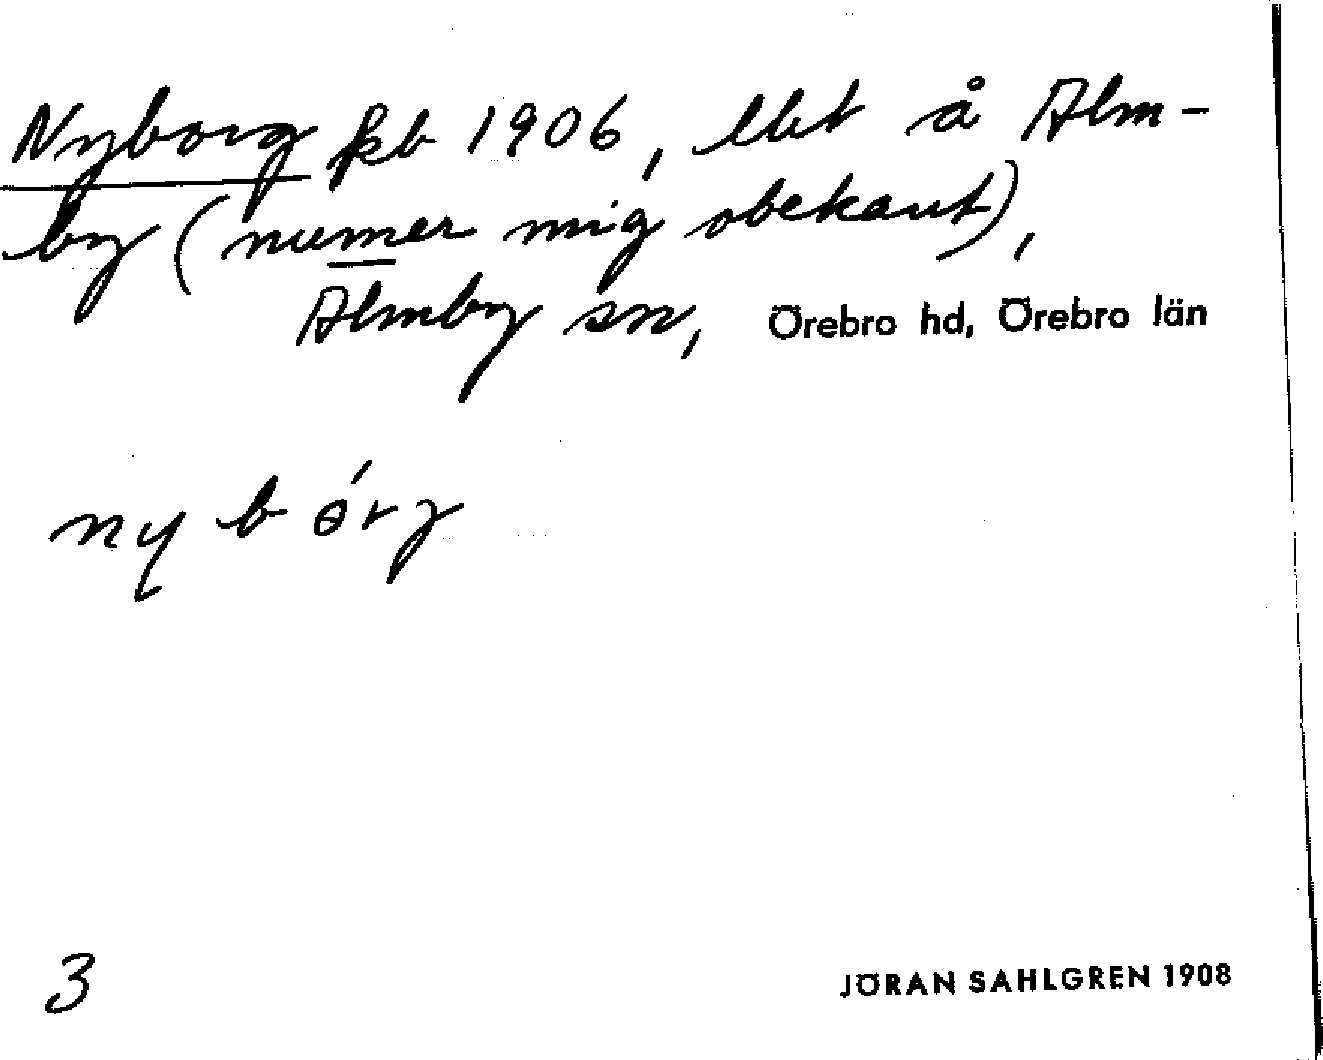 Nyborg kb 1906, lht å Alm-
by (numer mig obekant),
Almby sn, Örebro hd, Örebro län
ny b
3
JÖRAN SAHLGREN 1908